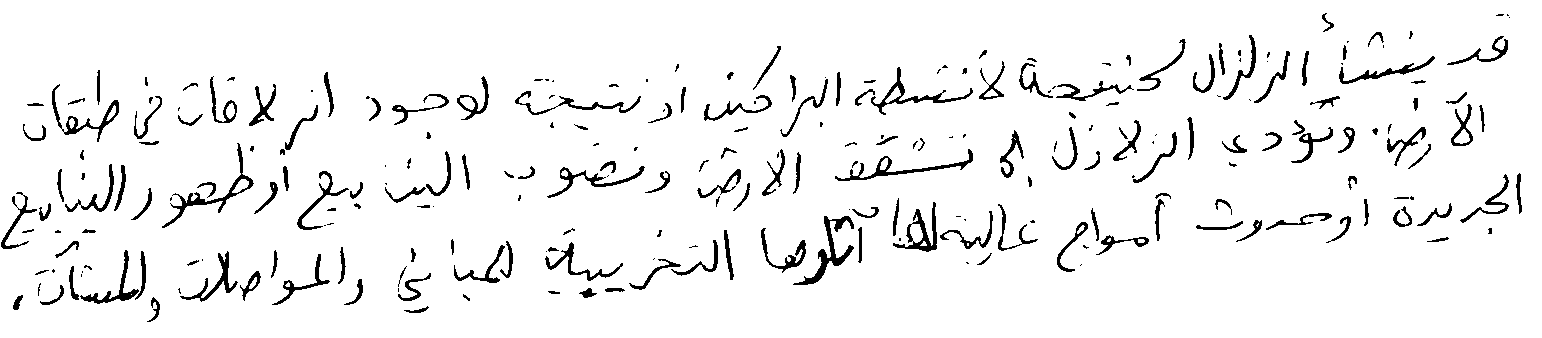 قد ينشأ الزلزال كنيتجة لأنشطة البراكين أو نتيجة لوجود انزلاقات في طبقات
الأرض. وتؤدي الزلازل إلى تشقق الارض ونضوب الينابيع أو ظهور الينابيع
الجديدة أو حدوث أمواج عالية لها آثارها التخريبية للمباني والمواصلات والمنشآت.